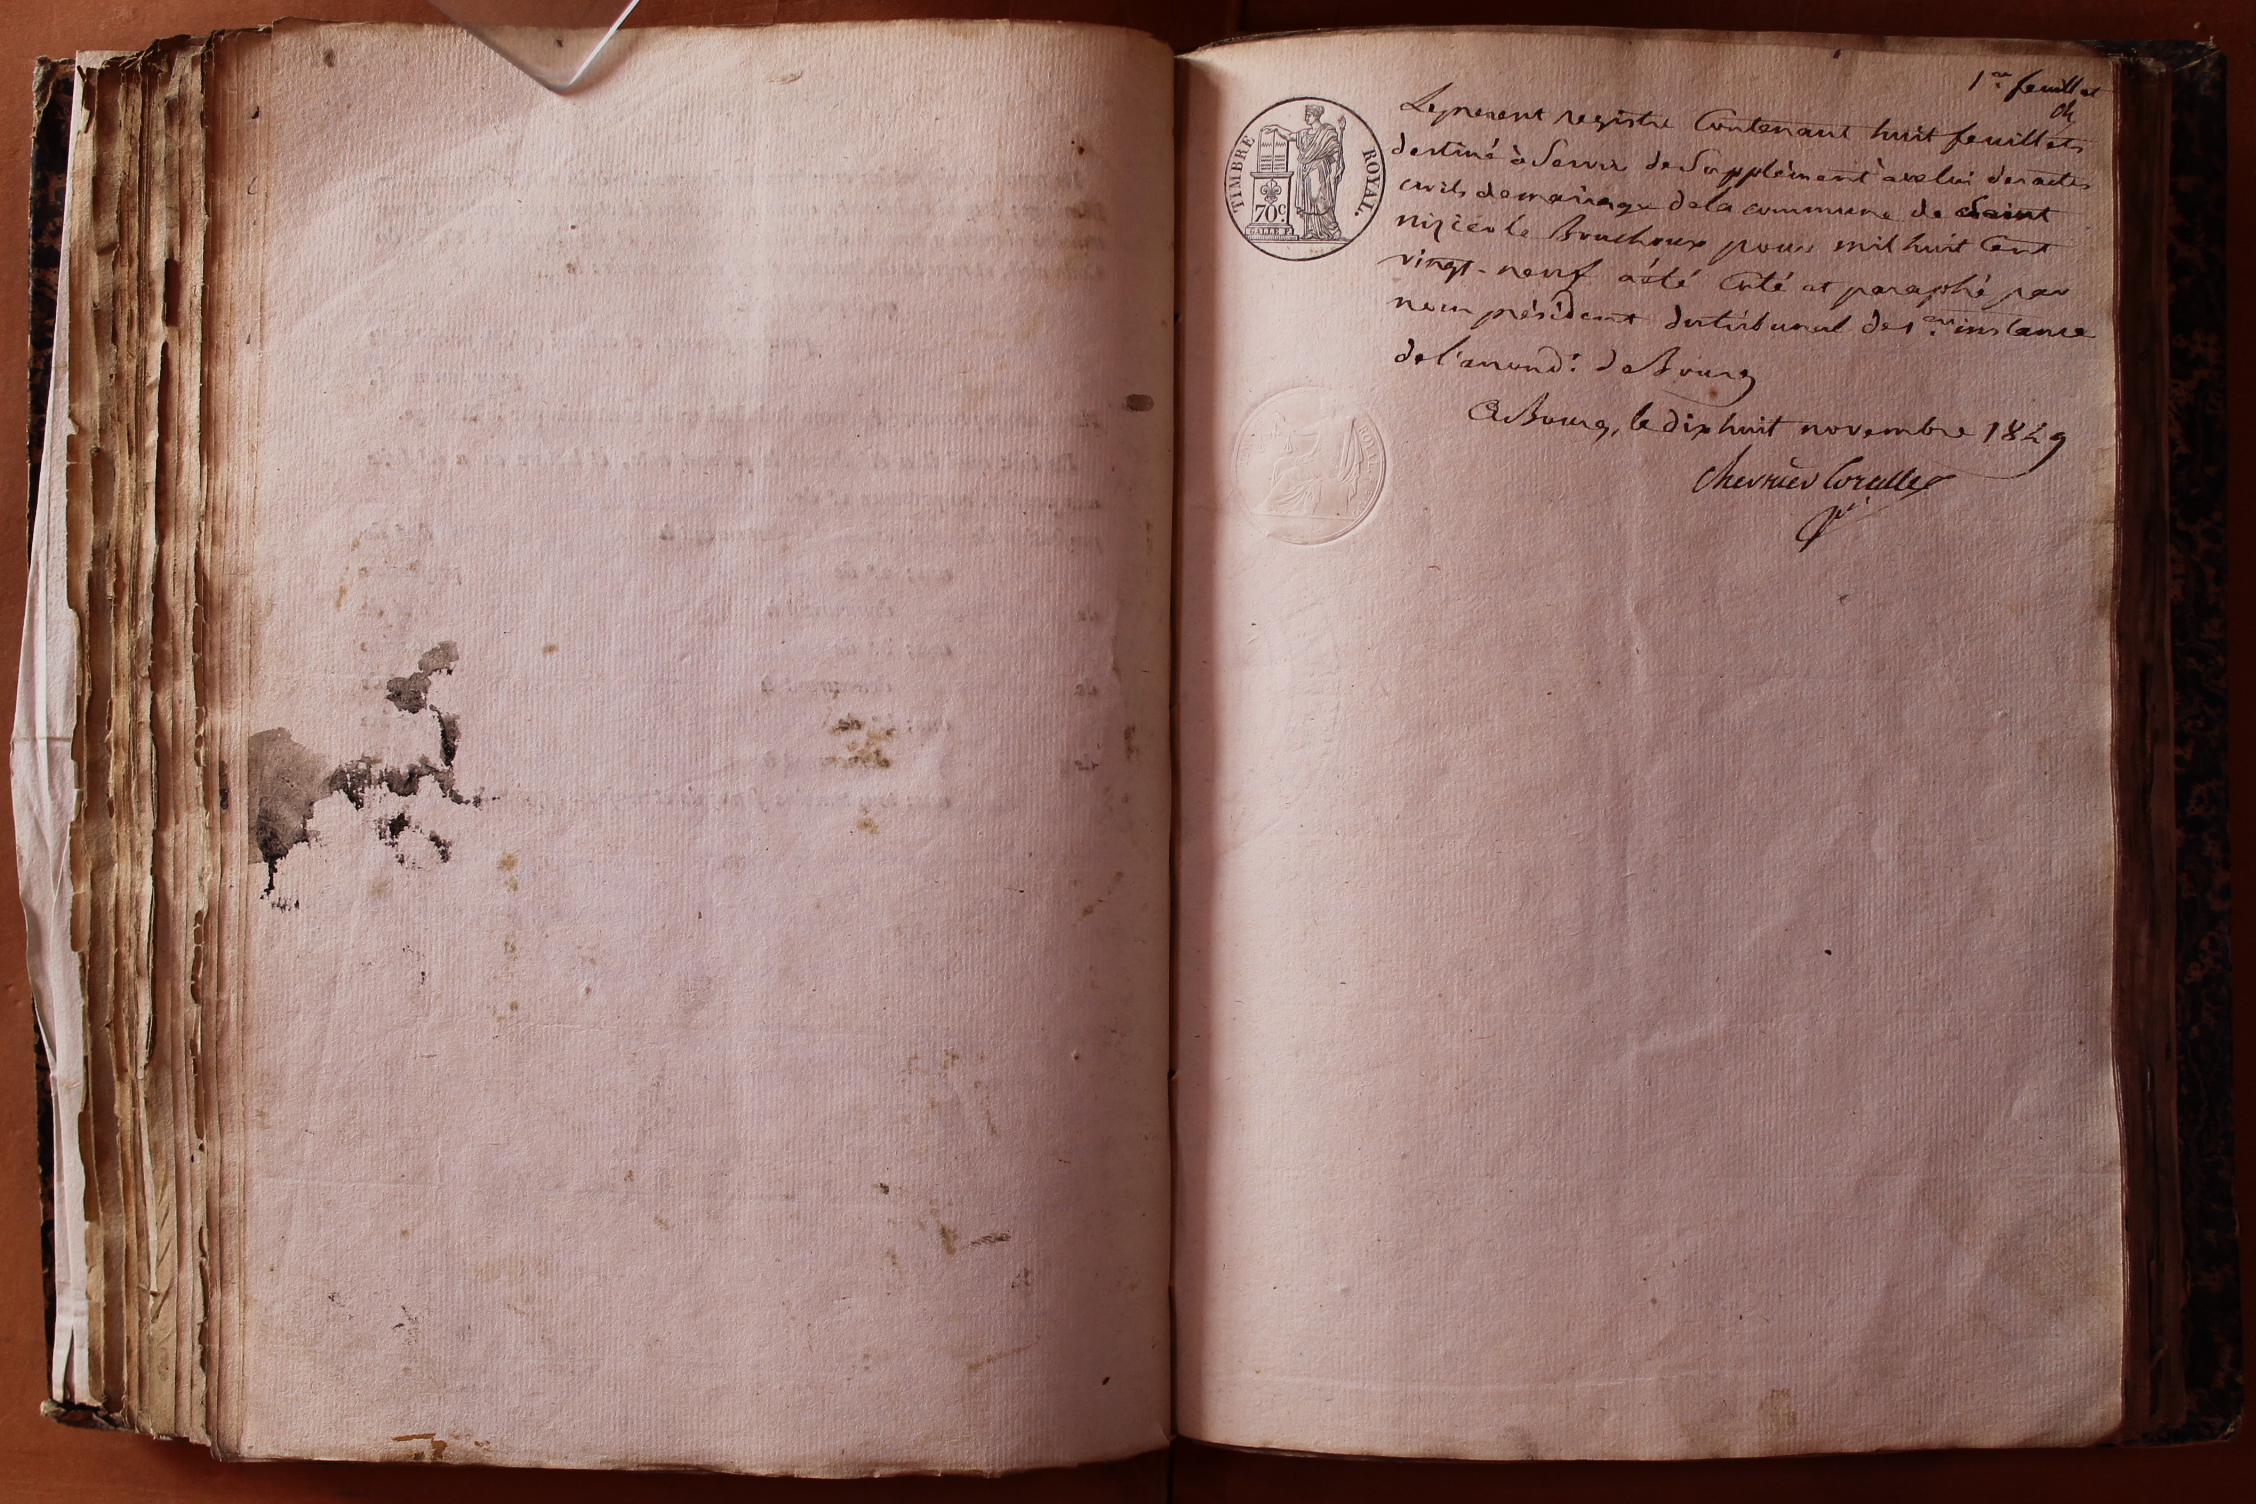 1er feuillet
ch
TIMBRE ROYAL.
70c.
GALLE F.
Le present registre Contenant huit feuillets
destiné à Servir de Supplément à celui des actes
civils de mariage de la commune de Saint
nizier le Bouchoux pour mil huit Cent
vingt-neuf a été Coté et paraphé par
nous président du tribunal de 1ere instance
de l'arrond.t de Bourg
A Bourg, le dix huit novembre 1829